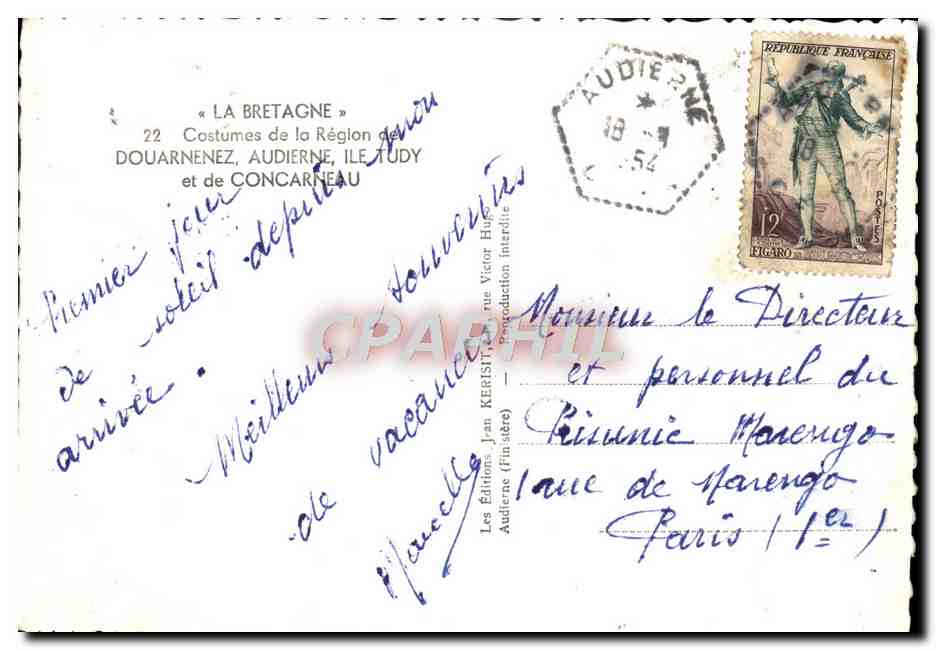 « LA BRETAGNE »
22 Costumes de la Région de
DOUARNENEZ, AUDIERNE, ILE TUDY
et de CONCARNEAU
Premier jour
de soleil depuis mon
arrivée.
Meilleurs souvenirs
de vacances
Marcelle
Les Éditions Jean KERISIT, rue Victor Hugo
Audierne (Finistère) — Reproduction interdite
AUDIERNE
18
54
RÉPUBLIQUE FRANÇAISE
POSTES
12
FIGARO
Monsieur le Directeur
et personnel du
Prisunic Marengo
1 rue de Marengo
Paris (1er)
CPARPHIL